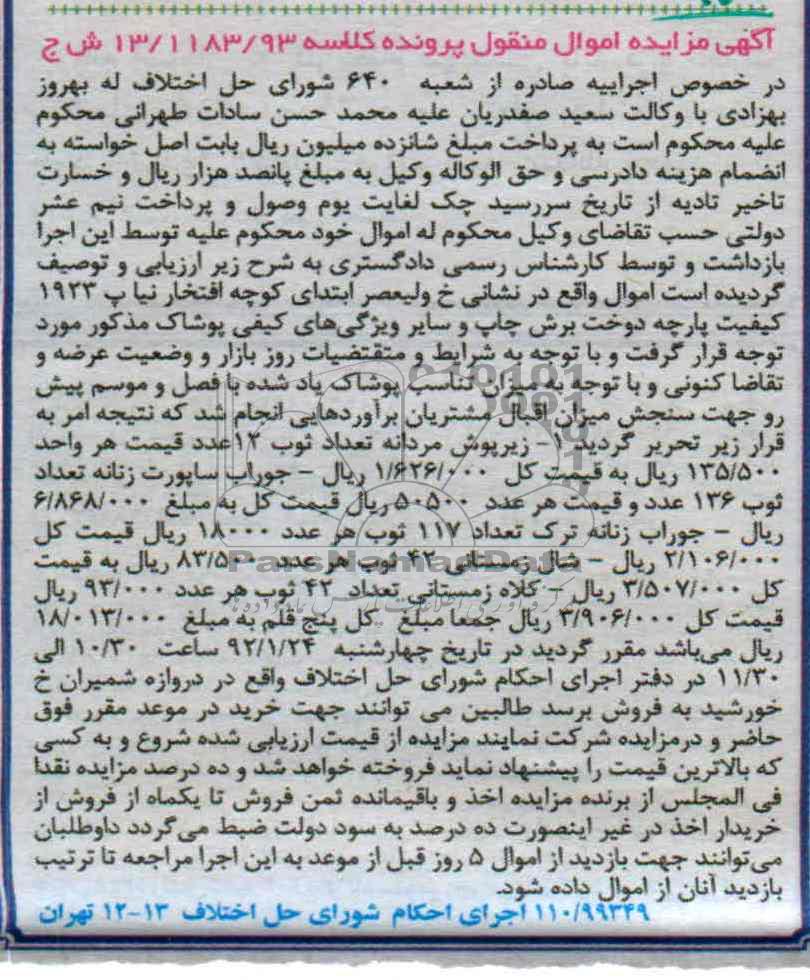 آگهی مزایده اموال منقول پرونده کلاسه ۱۳/۱۱۸۳/۹۳ ش ح
در خصوص اجراییه صادره از شعبه ۶۴۰ شورای حل اختلاف له بهروز
بهزادی با وکالت سعید صفدریان علیه محمد حسن سادات طهرانی محکوم
علیه محکوم است به پرداخت مبلغ شانزده میلیون ریال بابت اصل خواسته به
انضمام هزینه دادرسی و حق الوکاله وکیل به مبلغ پانصد هزار ریال و خسارت
تاخیر تادیه از تاریخ سررسید چک لغایت یوم وصول و پرداخت نیم عشر
دولتی حسب تقاضای وکیل محکوم له اموال خود محکوم علیه توسط این اجرا
بازداشت و توسط کارشناس رسمی دادگستری به شرح زیر ارزیابی و توصیف
گردیده است اموال واقع در نشانی خ ولیعصر ابتدای کوچه افتخار نیا پ ۱۹۲۳
کیفیت پارچه دوخت برش چاپ و سایر ویژگی‌های کیفی پوشاک مذکور مورد
توجه قرار گرفت و با توجه به شرایط و متقتضیات روز بازار و وضعیت عرضه و
تقاضا کنونی و با توجه به میزان تناسب پوشاک یاد شده با فصل و موسم پیش
رو جهت سنجش میزان اقبال مشتریان برآوردهایی انجام شد که نتیجه امر به
قرار زیر تحریر گردید ۱- زیرپوش مردانه تعداد ثوب ۱۲عدد قیمت هر واحد
۱۳۵/۵۰۰ ریال به قیمت کل ۱/۶۲۶/۰۰۰ ریال - جوراب ساپورت زنانه تعداد
ثوب ۱۳۶ عدد و قیمت هر عدد ۵۰۵۰۰ ریال قیمت کل به مبلغ ۶/۸۶۸/۰۰۰
ریال - جوراب زنانه ترک تعداد ۱۱۷ ثوب هر عدد ۱۸۰۰۰ ریال قیمت کل
۲/۱۰۶/۰۰۰ ریال - شال زمستانی ۴۲ ثوب هر عدد ۸۳/۵۰۰ ریال به قیمت
کل ۳/۵۰۷/۰۰۰ ریال - کلاه زمستانی تعداد ۴۲ ثوب هر عدد ۹۳/۰۰۰ ریال
قیمت کل ۳/۹۰۶/۰۰۰ ریال جمعا مبلغ کل پنج قلم به مبلغ ۱۸/۰۱۳/۰۰۰
ریال می‌باشد مقرر گردید در تاریخ چهارشنبه ۹۲/۱/۲۴ ساعت ۱۰/۳۰ الی
۱۱/۳۰ در دفتر اجرای احکام شورای حل اختلاف واقع در دروازه شمیران خ
خورشید به فروش برسد طالبین می توانند جهت خرید در موعد مقرر فوق
حاضر و درمزایده شرکت نمایند مزایده از قیمت ارزیابی شده شروع و به کسی
که بالاترین قیمت را پیشنهاد نماید فروخته خواهد شد و ده درصد مزایده نقدا
فی المجلس از برنده مزایده اخذ و باقیمانده ثمن فروش تا یکماه از فروش از
خریدار اخذ در غیر اینصورت ده درصد به سود دولت ضبط می گردد داوطلبان
می‌توانند جهت بازدید از اموال ۵ روز قبل از موعد به این اجرا مراجعه تا ترتیب
بازدید آنان از اموال داده شود.
۱۱۰/۹۹۳۴۹ اجرای احکام شورای حل اختلاف ۱۳-۱۲ تهران
ParsNamadData